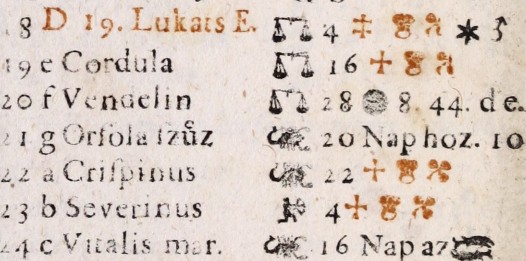 18 D 19. Lukats E. 4
19 e Cordula 16
20 f Vendelin 28 8. 44. de.
21 g Orſola ſzůz 20 Nap hoz. 10
22 a Criſpinus 22
23 b Severinus 4
24 c Vitalis mar. 16 Nap az